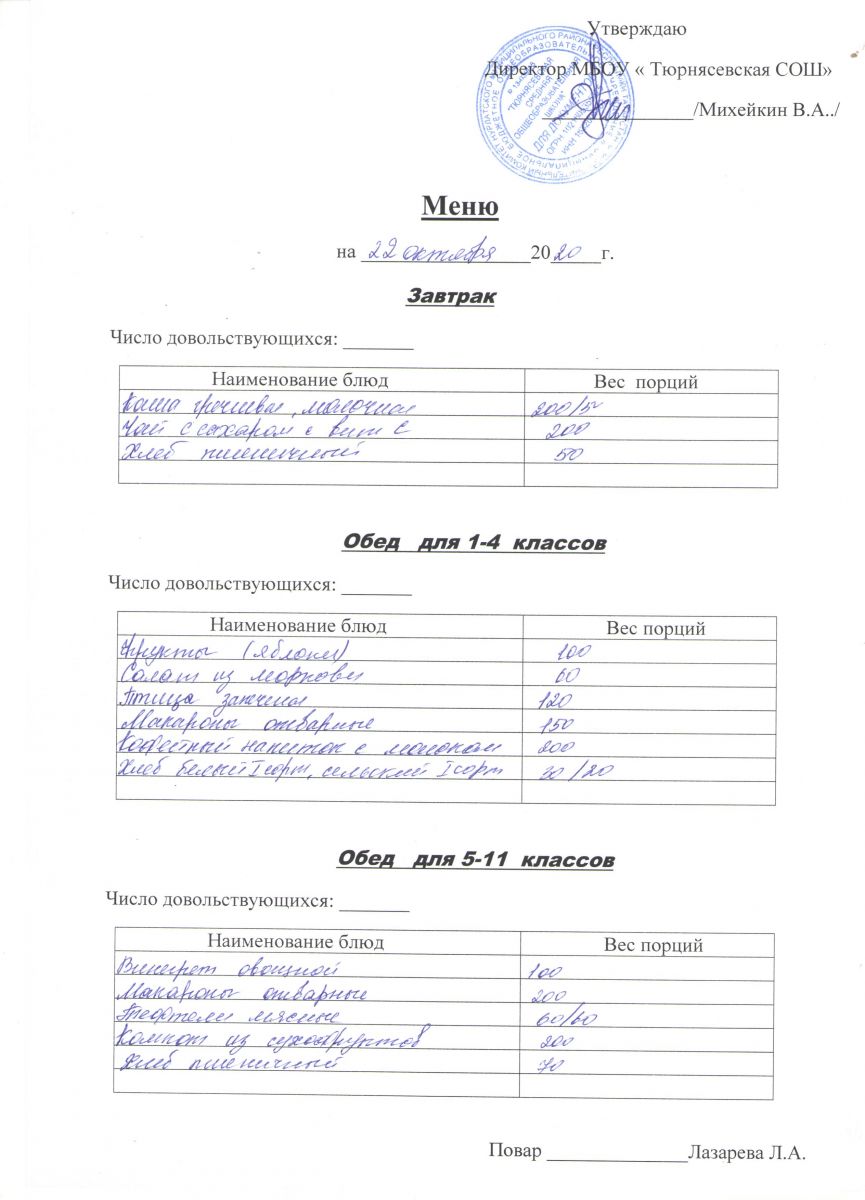 Утверждаю
Директор МБОУ « Тюрнясевская СОШ»
/Михейкин В.А../
"ТЮРНЯСЕВСКАЯ
СРЕДНЯЯ
ОБЩЕОБРАЗОВАТЕЛЬНАЯ
ШКОЛА"
ДЛЯ ДОКУМЕНТОВ
Меню
на 22 октября 2020 г.
Завтрак
Число довольствующихся: _______
Наименование блюд Вес порций
Каша гречневая, молочная 200/5
Чай с сахаром с вит С 200
Хлеб пшеничный 50
Обед для 1-4 классов
Число довольствующихся: _______
Наименование блюд Вес порций
Фрукты (яблоки) 100
Салат из моркови 60
Птица запеченая 120
Макароны отварные 150
Кофейный напиток с молоком 200
Хлеб белый I сорт, сельский I сорт 30/20
Обед для 5-11 классов
Число довольствующихся: _______
Наименование блюд Вес порций
Винегрет овощной 100
Макароны отварные 200
Тефтели мясные 60/60
Компот из сухофруктов 200
Хлеб пшеничный 70
Повар ______________Лазарева Л.А.